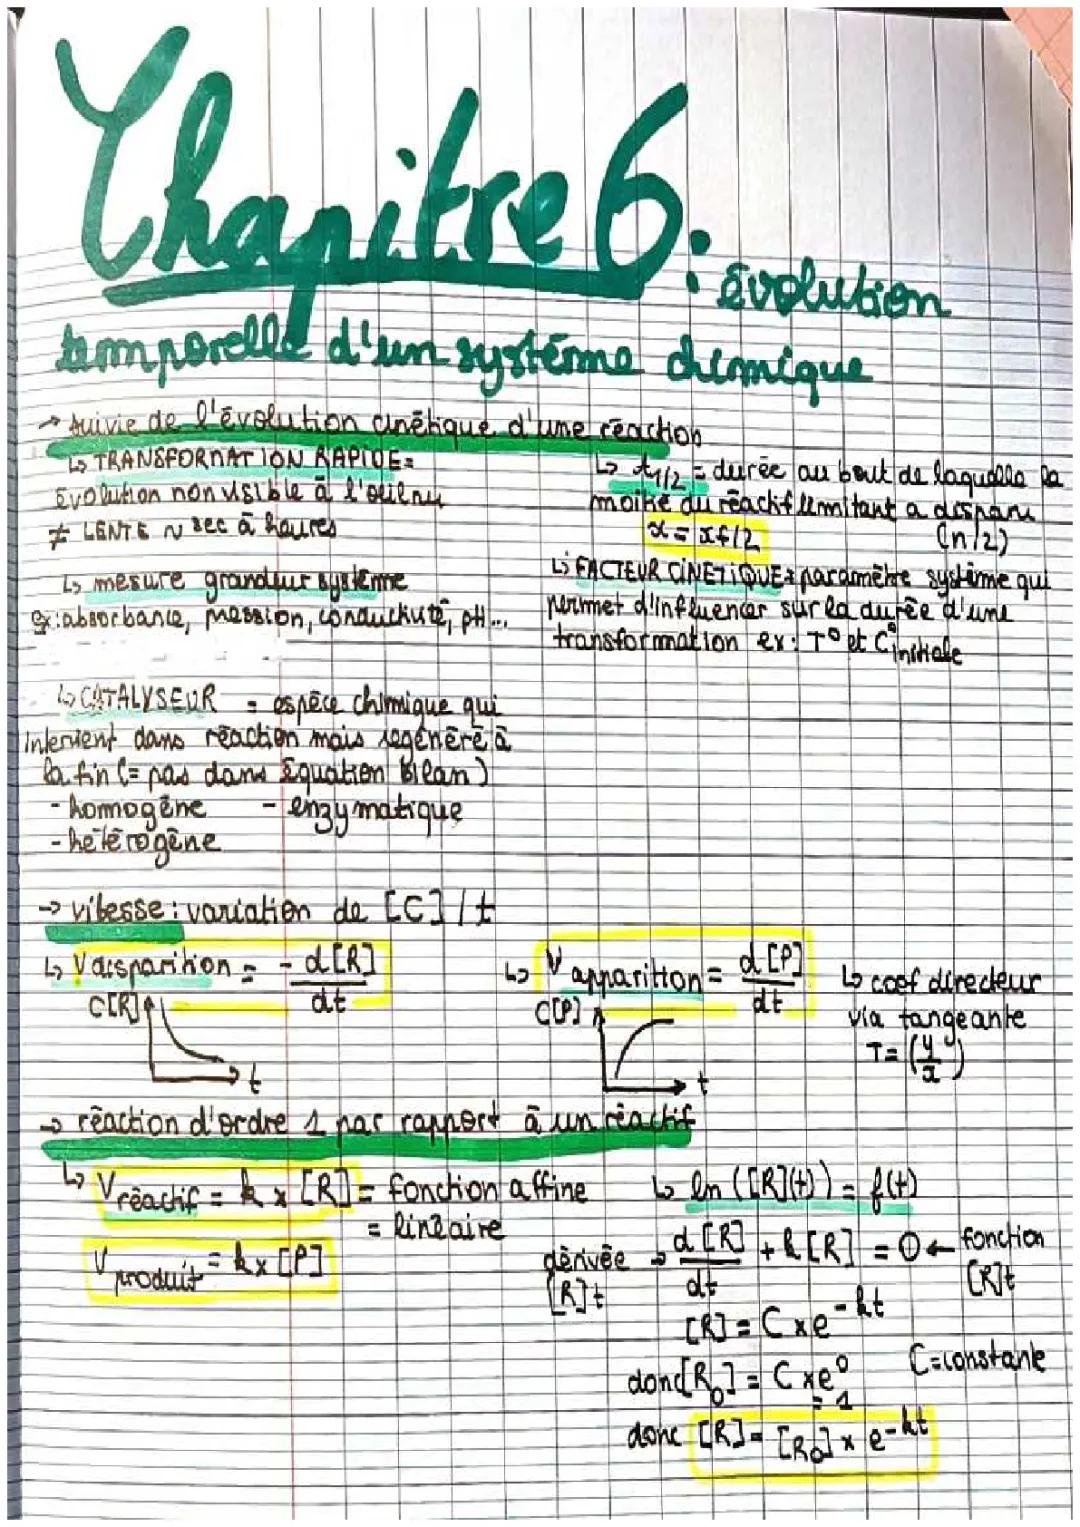 Chapitre 6 : évolution
temporelle d'un système chimique
→ suivie de l'évolution cinétique d'une réaction
↳ TRANSFORMATION RAPIDE =
évolution non visible à l'œil nu
≠ LENTE ~ sec à heures
↳ mesure grandeur système
ex: absorbance, pression, conductivité, pH...
↳ t1/2 = durée au bout de laquelle la
moitié du réactif limitant a disparu
x = xf/2 (n/2)
↳ FACTEUR CINETIQUE = paramètre système qui
permet d'influencer sur la durée d'une
transformation ex: T° et C° initiale
↳ CATALYSEUR = espèce chimique qui
intervient dans réaction mais regénéré à
la fin (= pas dans Equation Bilan)
- homogène - enzymatique
- hétérogène
→ vitesse : variation de [C] / t
↳ V disparition = - d[R]/dt
C[R]
t
↳ V apparition = d[P]/dt
C[P]
t
↳ coef directeur
via tangeante
T = (y/x)
→ réaction d'ordre 1 par rapport à un réactif
↳ V réactif = k x [R] = fonction affine
= linéaire
V produit = k x [P]
↳ ln([R](t)) = f(t)
dérivée [R]t → d[R]/dt + k[R] = 0 ← fonction [R]t
[R] = C x e^-kt
C = constante
donc [R0] = C x e^0
= 1
donc [R] = [R0] x e^-kt